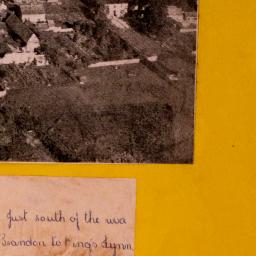 Just south of the wa
Brandon to Kings Lynn